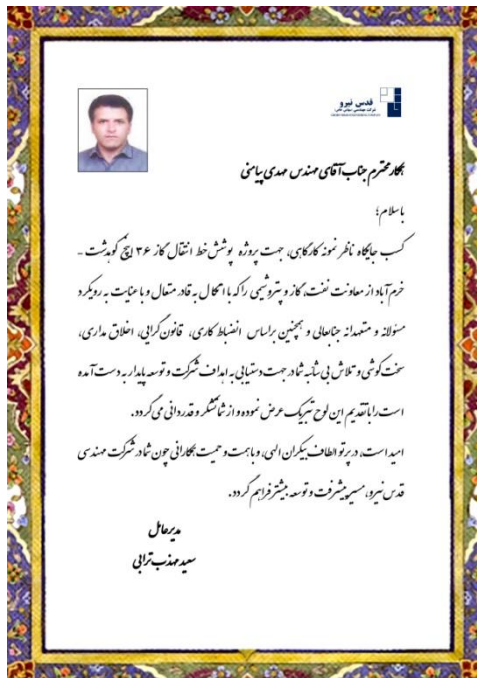 قدس نیرو
همکار محترم جناب آقای مهندس مهدی پیامنی
باسلام؛
کسب جایگاه ناظر نمونه کارگاهی، جهت پروژه پوشش خط انتقال گاز ۳۶ اینچ کوهدشت -
خرم آباد از معاونت نفت، گاز و پتروشیمی را که با اتکال به قادر متعال و با عنایت به رویکرد
مسئولانه و متعهدانه جنابعالی و همچنین براساس انضباط کاری، قانون گرایی، اخلاق مداری،
سخت کوشی و تلاش بی شائبه شما در جهت دستیابی به اهداف شرکت و توسعه پایدار به دست آمده
است را با تقدیم این لوح تبریک عرض نموده و از شما تشکر و قدردانی می گردد.
امید است، در پرتو الطاف بیکران الهی، و با همت و حمیت همکارانی چون شما در شرکت مهندسی
قدس نیرو، مسیر پیشرفت و توسعه بیشتر فراهم گردد.
مدیرعامل
سعید مهذب ترابی